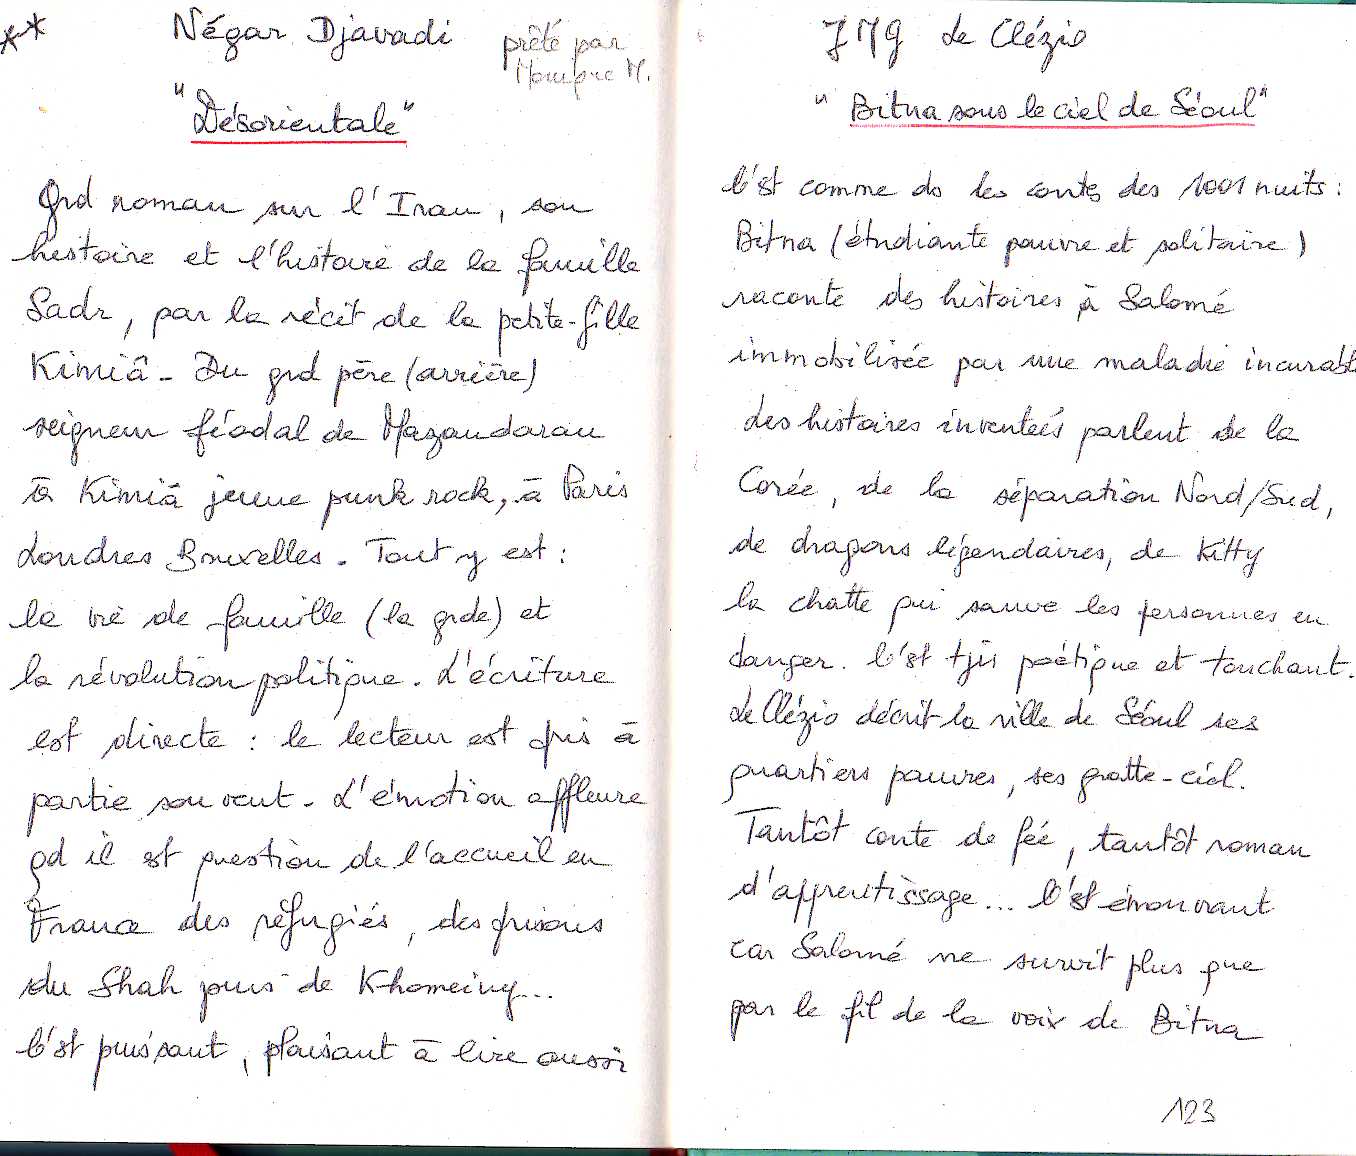 ** Négar Djavadi
prêté par
M.
"Désorientale"
Grd roman sur l'Iran, son
histoire et l'histoire de la famille
Sadr, par le récit de la petite-fille
Kimiâ - Du grd père (arrière)
seigneur féodal de Mazandaran
à Kimiâ jeune punk rock, à Paris
Londres Bruxelles. Tout y est :
la vie de famille (la grde) et
la révolution politique. L'écriture
est directe : le lecteur est pris à
partie souvent - L'émotion affleure
qd il est question de l'accueil en
France des réfugiés, des prisons
du Shah puis de Khomeiny...
C'est puissant, plaisant à lire aussi
JMG Le Clézio
"Bitna sous le ciel de Séoul"
C'est comme ds les contes des 1001 nuits :
Bitna (étudiante pauvre et solitaire)
raconte des histoires à Salomé
immobilisée par une maladie incurable
Les histoires inventées parlent de la
Corée, de la séparation Nord/Sud,
de dragons légendaires, de Kitty
la chatte qui sauve les personnes en
danger. C'est tjs poétique et touchant.
Le Clézio décrit la ville de Séoul ses
quartiers pauvres, ses gratte-ciel.
Tantôt conte de fée, tantôt roman
d'apprentissage... C'est émouvant
car Salomé ne survit plus que
par le fil de la voix de Bitna
123